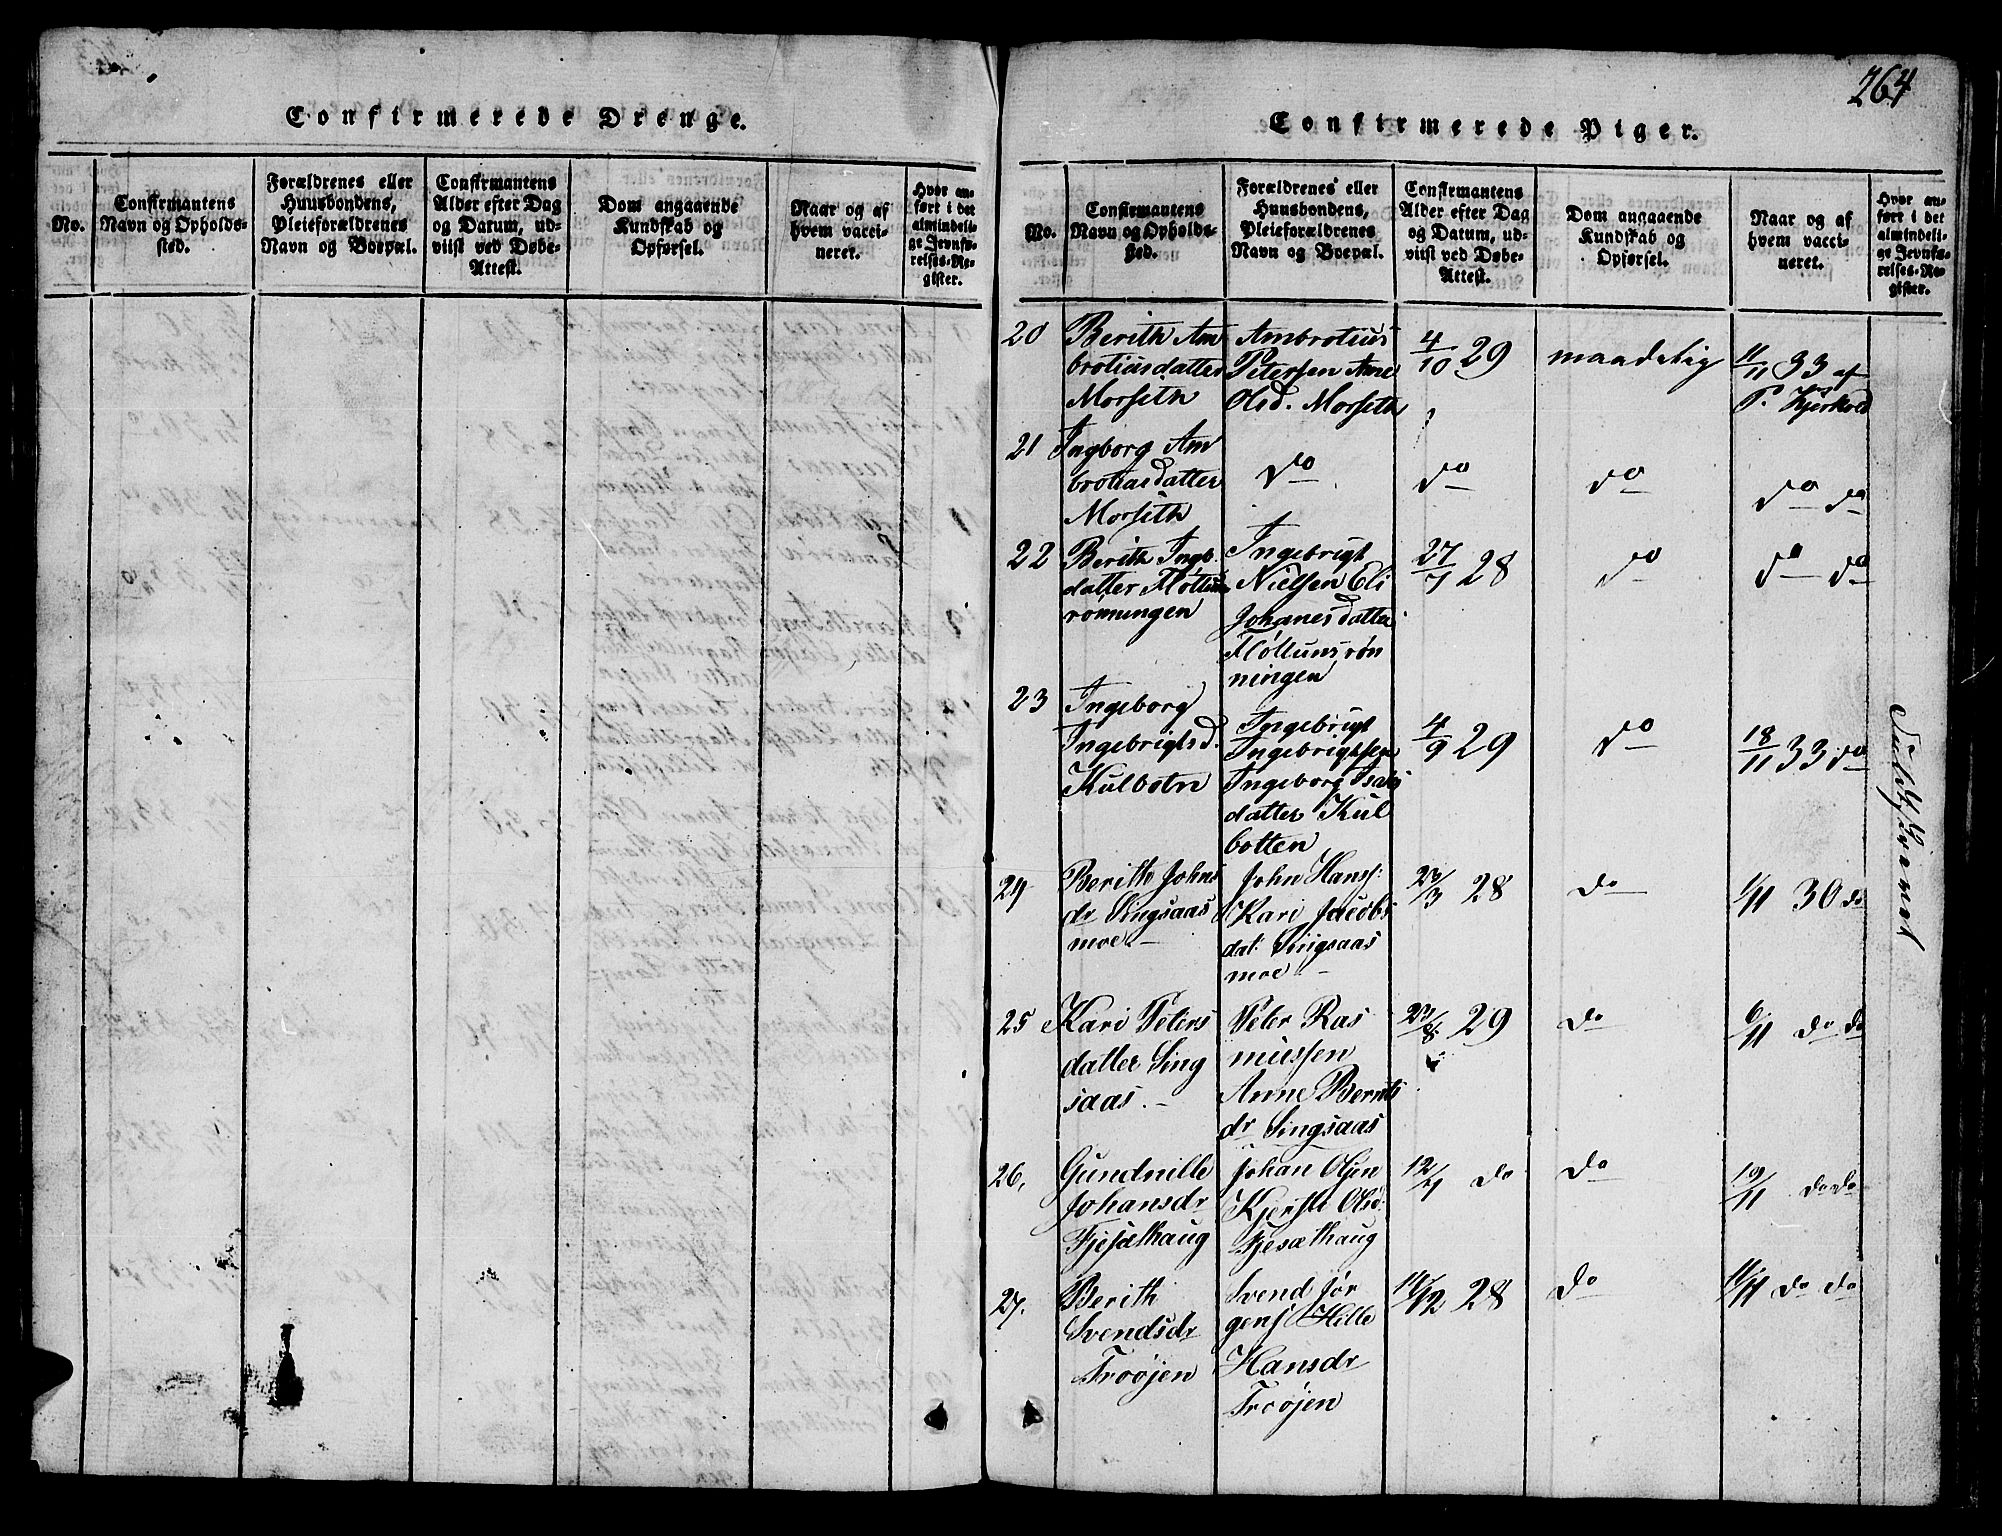 264
Confirmerede Drenge.
No.
Confirmantens
Navn og Opholds-
sted.
Forældrenes eller
Huusbondens,
Pleieforældrenes
Navn og Boepæl.
Confirmantens
Alder efter Dag
og Datum, ud-
viist ved Døbe-
Attest.
Dom angaaende
Kundskab og
Opførsel.
Naar og af
hvem vacci-
neret.
Hvor an-
ført i det
almindeli-
ge Jevnfø-
relses-Re-
gister.
Confirmerede Piger.
No.
Confirmantens
Navn og Opholds-
sted.
Forældrenes eller
Huusbondens,
Pleieforældrenes
Navn og Boepæl.
Confirmantens
Alder efter Dag
og Datum, ud-
viist ved Døbe-
Attest.
Dom angaaende
Kundskab og
Opførsel.
Naar og af
hvem vacci-
neret.
Hvor an-
ført i det
almindeli-
ge Jevnfø-
relses-Re-
gister.
20
Berith Am
brotiusdatter
Morseth
Ambrotius
Petersen Ane
Olsd. Morseth
4/10 29
maadelig
11/11 33 af
P. Kjerkvold
21
Ingborg Am
brotiasdatter
Morseth
do
do
do
do do
22
Berith Ingb.
datter Fløttum
rønningen
Ingebrigt
Nielsen Eli
Johanesdatter
Fløttumsrøn
ningen
27/7 28
do
do do
23
Ingeborg
Ingebrigtsd.
Kulbotn
Ingebrigt
Ingebrigtsen
Ingeborg Isaks
datter Kul
botten
4/9 29
do
18/11 33 do
24
Berith Johns
dr Singsaas
moe
John Hans:
Kari Jacobs
dat: Singsaas
moe
23/3 28
do
1/11 30 do
25
Kari Peters
datter Sing
saas.
Peter Ras
mussen
Anne Bernts
dr Singsaas
23/8 29
do
6/11 do do
26,
Gundnille
Johansdr
Fjesæthaug
Johan Olsen
Kjersti Olsd:
Fjesæthaug
do
do
do do
27.
Berith
Svendsdr
Troøjen
Svend Jør
gens Hille
Hansdr
Troøjen
28
do
do do